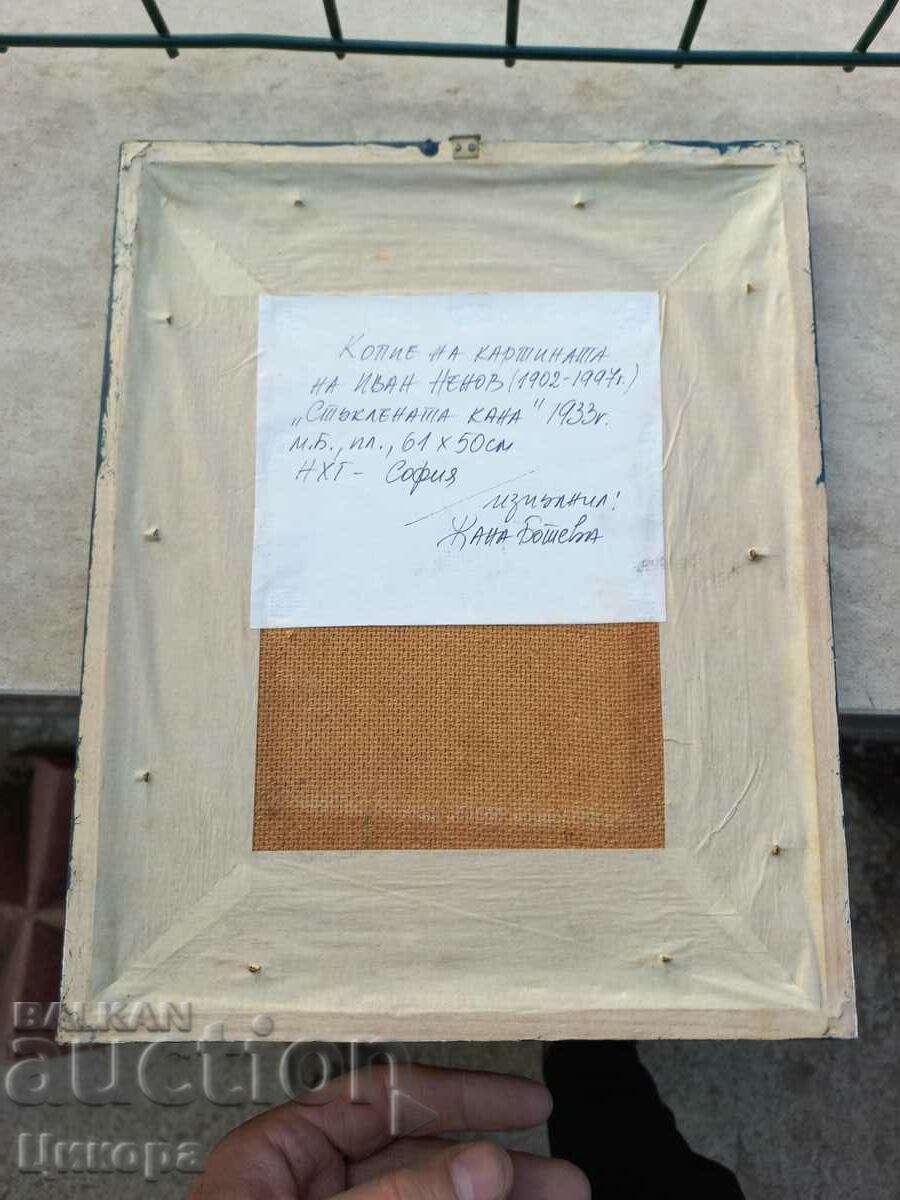 Копие на картината
на Иван Ненов (1902-1997г.)
„Стъклената кана" 1933г.
м.б., пл., 61 х 50см
НХГ - София
изпълнил:
Жана Ботева
BALKAN
auction
Цикора